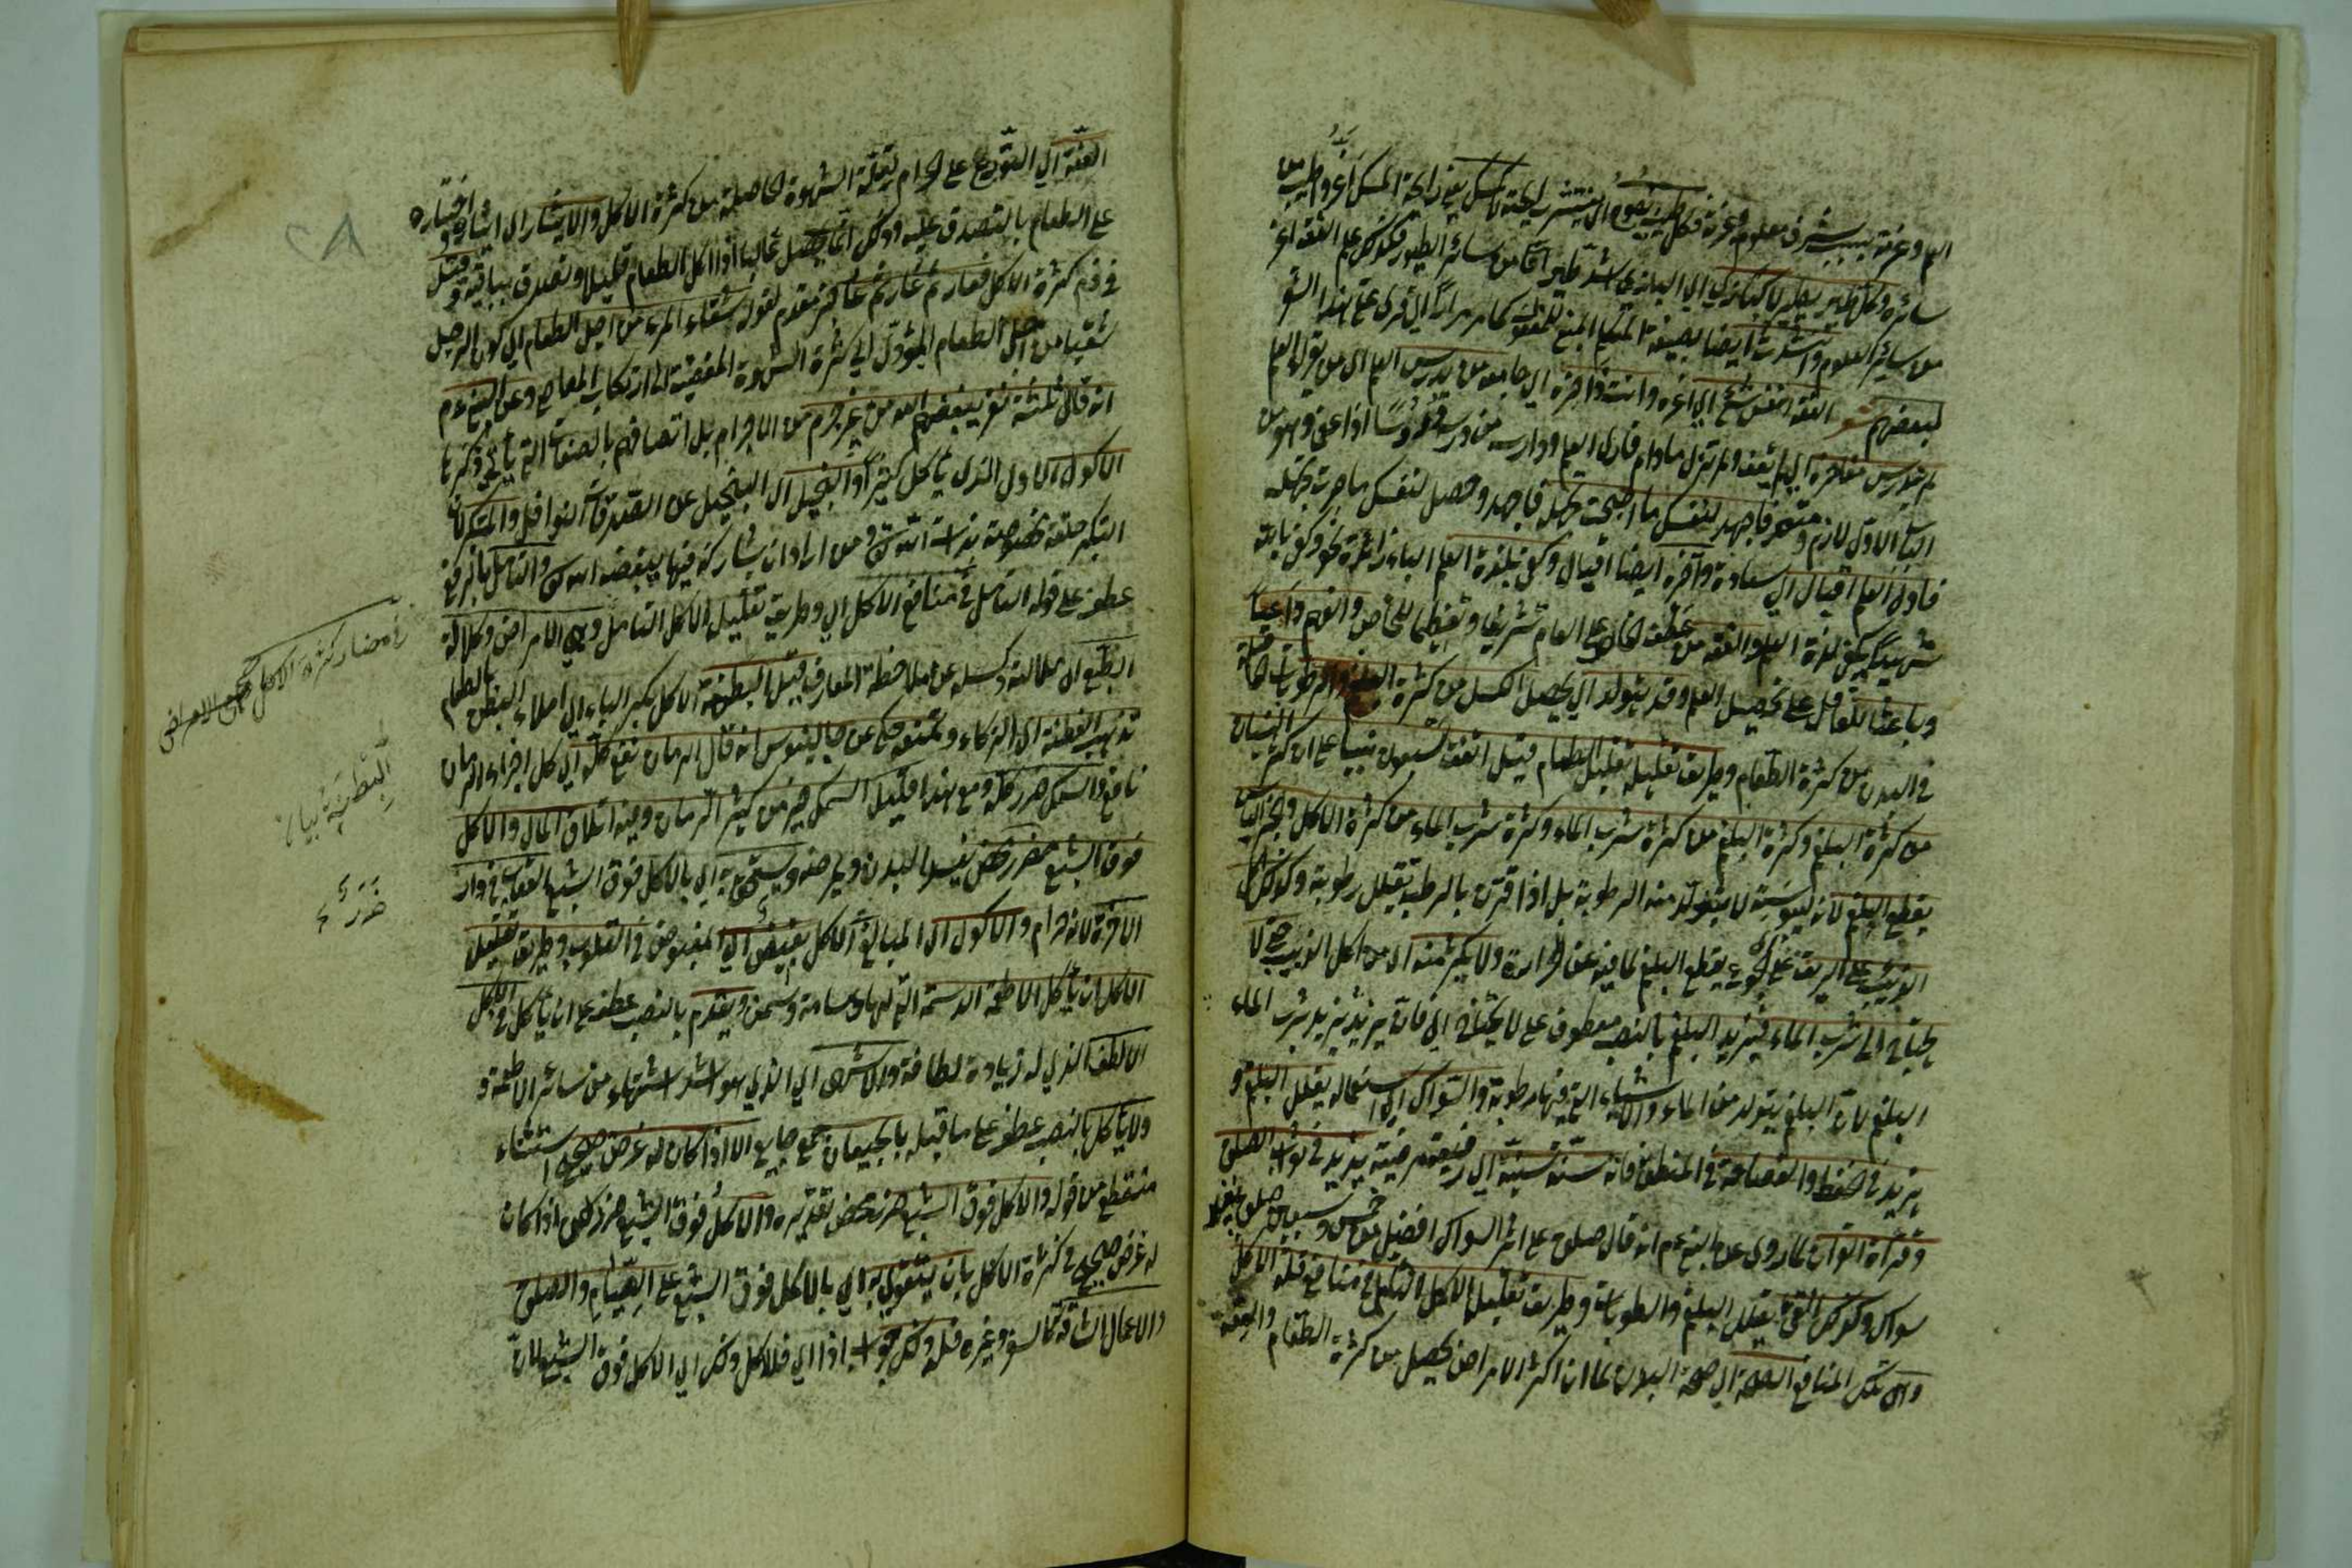 العلم وعزته بسبب شرف معلومه وعزته فكم طيب يفوح اى ينتشر ريحته لا كمسك يعنى رائحة المسك اعز واطيب من
سائره وكم طير يطير لا كبازى اى البازى اشد طيرانا من سائر الطيور فكذلك علم الفقه اعز
من سائر العلوم وانشدت ايضا بصيغة المتكلم المبنى للمفعول كما مر مرارا اى قرئ على هذا الشعر
لبعضهم شعر الفقه انفس شئ اى اعزه وانت ذاخره اى جامعه من يدرس العلم اى من يقرأ العلم
لم تدرس مفاخره اى لم تعف ولم تزل مادام قارئ العلم ودارسه من درس دروسا اذا عفى وهو من
الباب الاول لازم ومتعد فاجهد لنفسك ما اصبحت تجهله فاجهد وحصل لنفسك ما صرت تجهله
فاول العلم اقبال اى سعادة وآخره ايضا اقبال وكفى بلذة العلم الباء زائدة نحو وكفى بالله
شهيدا يكفى لذة العلم والفقه من عطف الخاص على العام تشريفا وتعظيما للخاص والفهم داعيا
وباعثا للعاقل على تحصيل العلم وقد يتولد اى يحصل الكسل من كثرة البلغم والرطوبات الحاصلة
فى البدن من كثرة الطعام وطريق تقليله تقليل الطعام قيل اتفق سبعون نبيا على ان كثرة النسيان
من كثرة البلغم وكثرة البلغم من كثرة شرب الماء وكثرة شرب الماء من كثرة الاكل والخبز اليابس
يقطع البلغم لانه ليبوسته لا يتولد منه الرطوبة بل اذا قرن بالرطب تقلل رطوبة وكذلك اكل
الزبيب على الريق على الجوع يقطع البلغم لما فيه من الحرارة ولا يكثر منه اى من اكل الزبيب حتى لا
يحتاج الى شرب الماء فيزيد البلغم بالنصب معطوف على لا يحتاج اى فانه يزيد بزيد شرب الماء
البلغم لان البلغم يتولد من الماء والاشياء التى فيها رطوبة والسواك اى استعماله يقلل البلغم و
يزيد فى الحفظ والفصاحة فى المنطق فانه سنة سنية اى رفيعة مرضية يزيد فى ثواب الصلوة
وقرأة القرآن لما روى عن النبى عم انه قال صلوة على اثر السواك افضل من خمس وسبعين صلوة بغير
سواك وكذلك القئ يقلل البلغم والرطوبات وطريق تقليل الاكل التأمل فى منافع قلة الاكل
وهى تلك المنافع الصحة اى صحة البدن لما ان اكثر الامراض يحصل من كثرة الطعام والعفة
العفة اى التورع على الحرام بقلة الشهوة الحاصلة من كثرة الاكل والايثار اى ايثاره واختياره
على الطعام بالتصدق عليه وذلك انما يحصل غالبا اذا اكل الطعام قليلا وتصدق بباقيه وقيل
فى ذم كثرة الاكل فعار ثم عار ثم عار خبر مقدم لقوله شقاء المرء من اجل الطعام اى كون الرجل
شقيا من اجل الطعام المؤدى الى كثرة الشهوة المفضية الى ارتكاب المعاصى وعن النبى عم
انه قال ثلثة نفر يبغضهم الله من غير جرم من الاجرام بل اتصافهم بالصفات التى يأتى ذكرها
الاكول الاول الذى يأكل كثيرا والبخيل اى البخيل عن الصدقات النوافل والمتكبر لان
التكبر صفة مخصوصة بذات الله تعالى ومن اراد ان يشاركه فيها يبغضه الله تعالى والتأمل بالرفع
عطف على قوله التأمل فى منافع الاكل اى وطريقة تقليل الاكل التأمل وهى الامراض وكلالة
الطبع اى ملالته وكسله عن ملاحظة المعارف قيل البطنة الاكل بكسر الباء اى املاء البطن بالطعام
تذهب الفطنة اى الذكاء وتمنعه حكى عن جالينوس انه قال الرمان نفع كله اى كل اجزاء الرمان
نافع والسمك ضرر كله ومع هذا قليل السمك خير من كثير الرمان وفيه اتلاف المال والاكل
فوق الشبع ضرر محض يفسد البدن ويمرضه ويستحق به اى بالاكل فوق الشبع العقاب فى دار
الاخرة لانه حرام والاكول اى المبالغ فى الاكل بغيض اى المبغوض فى القلوب وطريق تقليل
الاكل ان يأكل الاطعمة الدسمة التى لها دسامة وسمن ويقدم بالنصب عطف على ان يأكل فى الاكل
الالطف الذى له زيادة لطافة والاشهى اى الذى هو اشد اشتهاء من سائر الاطعمة و
ولا يأكل بالنصب عطف على ما قبله بالجيعان جمع جايع الا اذا كان له غرض صحيح استثناء
منقطع من قوله والاكل فوق الشبع ضرر محض تقديره والاكل فوق الشبع ضرر لكن اذا كان
له غرض صحيح فى كثرة الاكل بان يتقوى به اى بالاكل فوق الشبع على الصيام والصلوة
والاعمال الشاقة كالسفر وغيره فله ذلك جواب اذا اى فللاكل ذلك اى الاكل فوق الشبع لان
فى مضار كثرة الاكل هى الامراض
البطنة
ضرر
٢٨